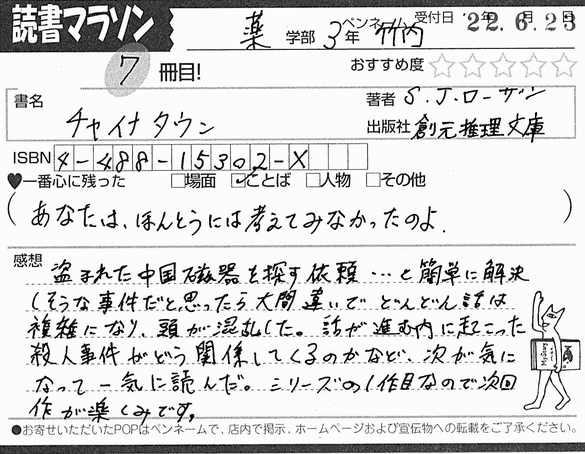 読書マラソン
薬 学部 3年 ペンネーム 竹内 受付日 '22年6月23日
7 冊目!
おすすめ度 ☆☆☆☆☆
書名 チャイナタウン
著者 S.J.ローザン
出版社 創元推理文庫
ISBN 4-488-15302-X
♥一番心に残った □場面 ☑ことば □人物 □その他
(あなたは、ほんとうには考えてみなかったのよ.)
感想
盗まれた中国磁器を探す依頼…と簡単に解決
しそうな事件だと思ったら大間違いで どんどん話は
複雑になり、頭が混乱した。話が進む内に起こった
殺人事件がどう関係してくるのかなど、次が気に
なって一気に読んだ。シリーズの1作目なので次回
作が楽しみです。
●お寄せいただいたPOPはペンネームで、店内で掲示、ホームページおよび宣伝物への転載をご了承ください。